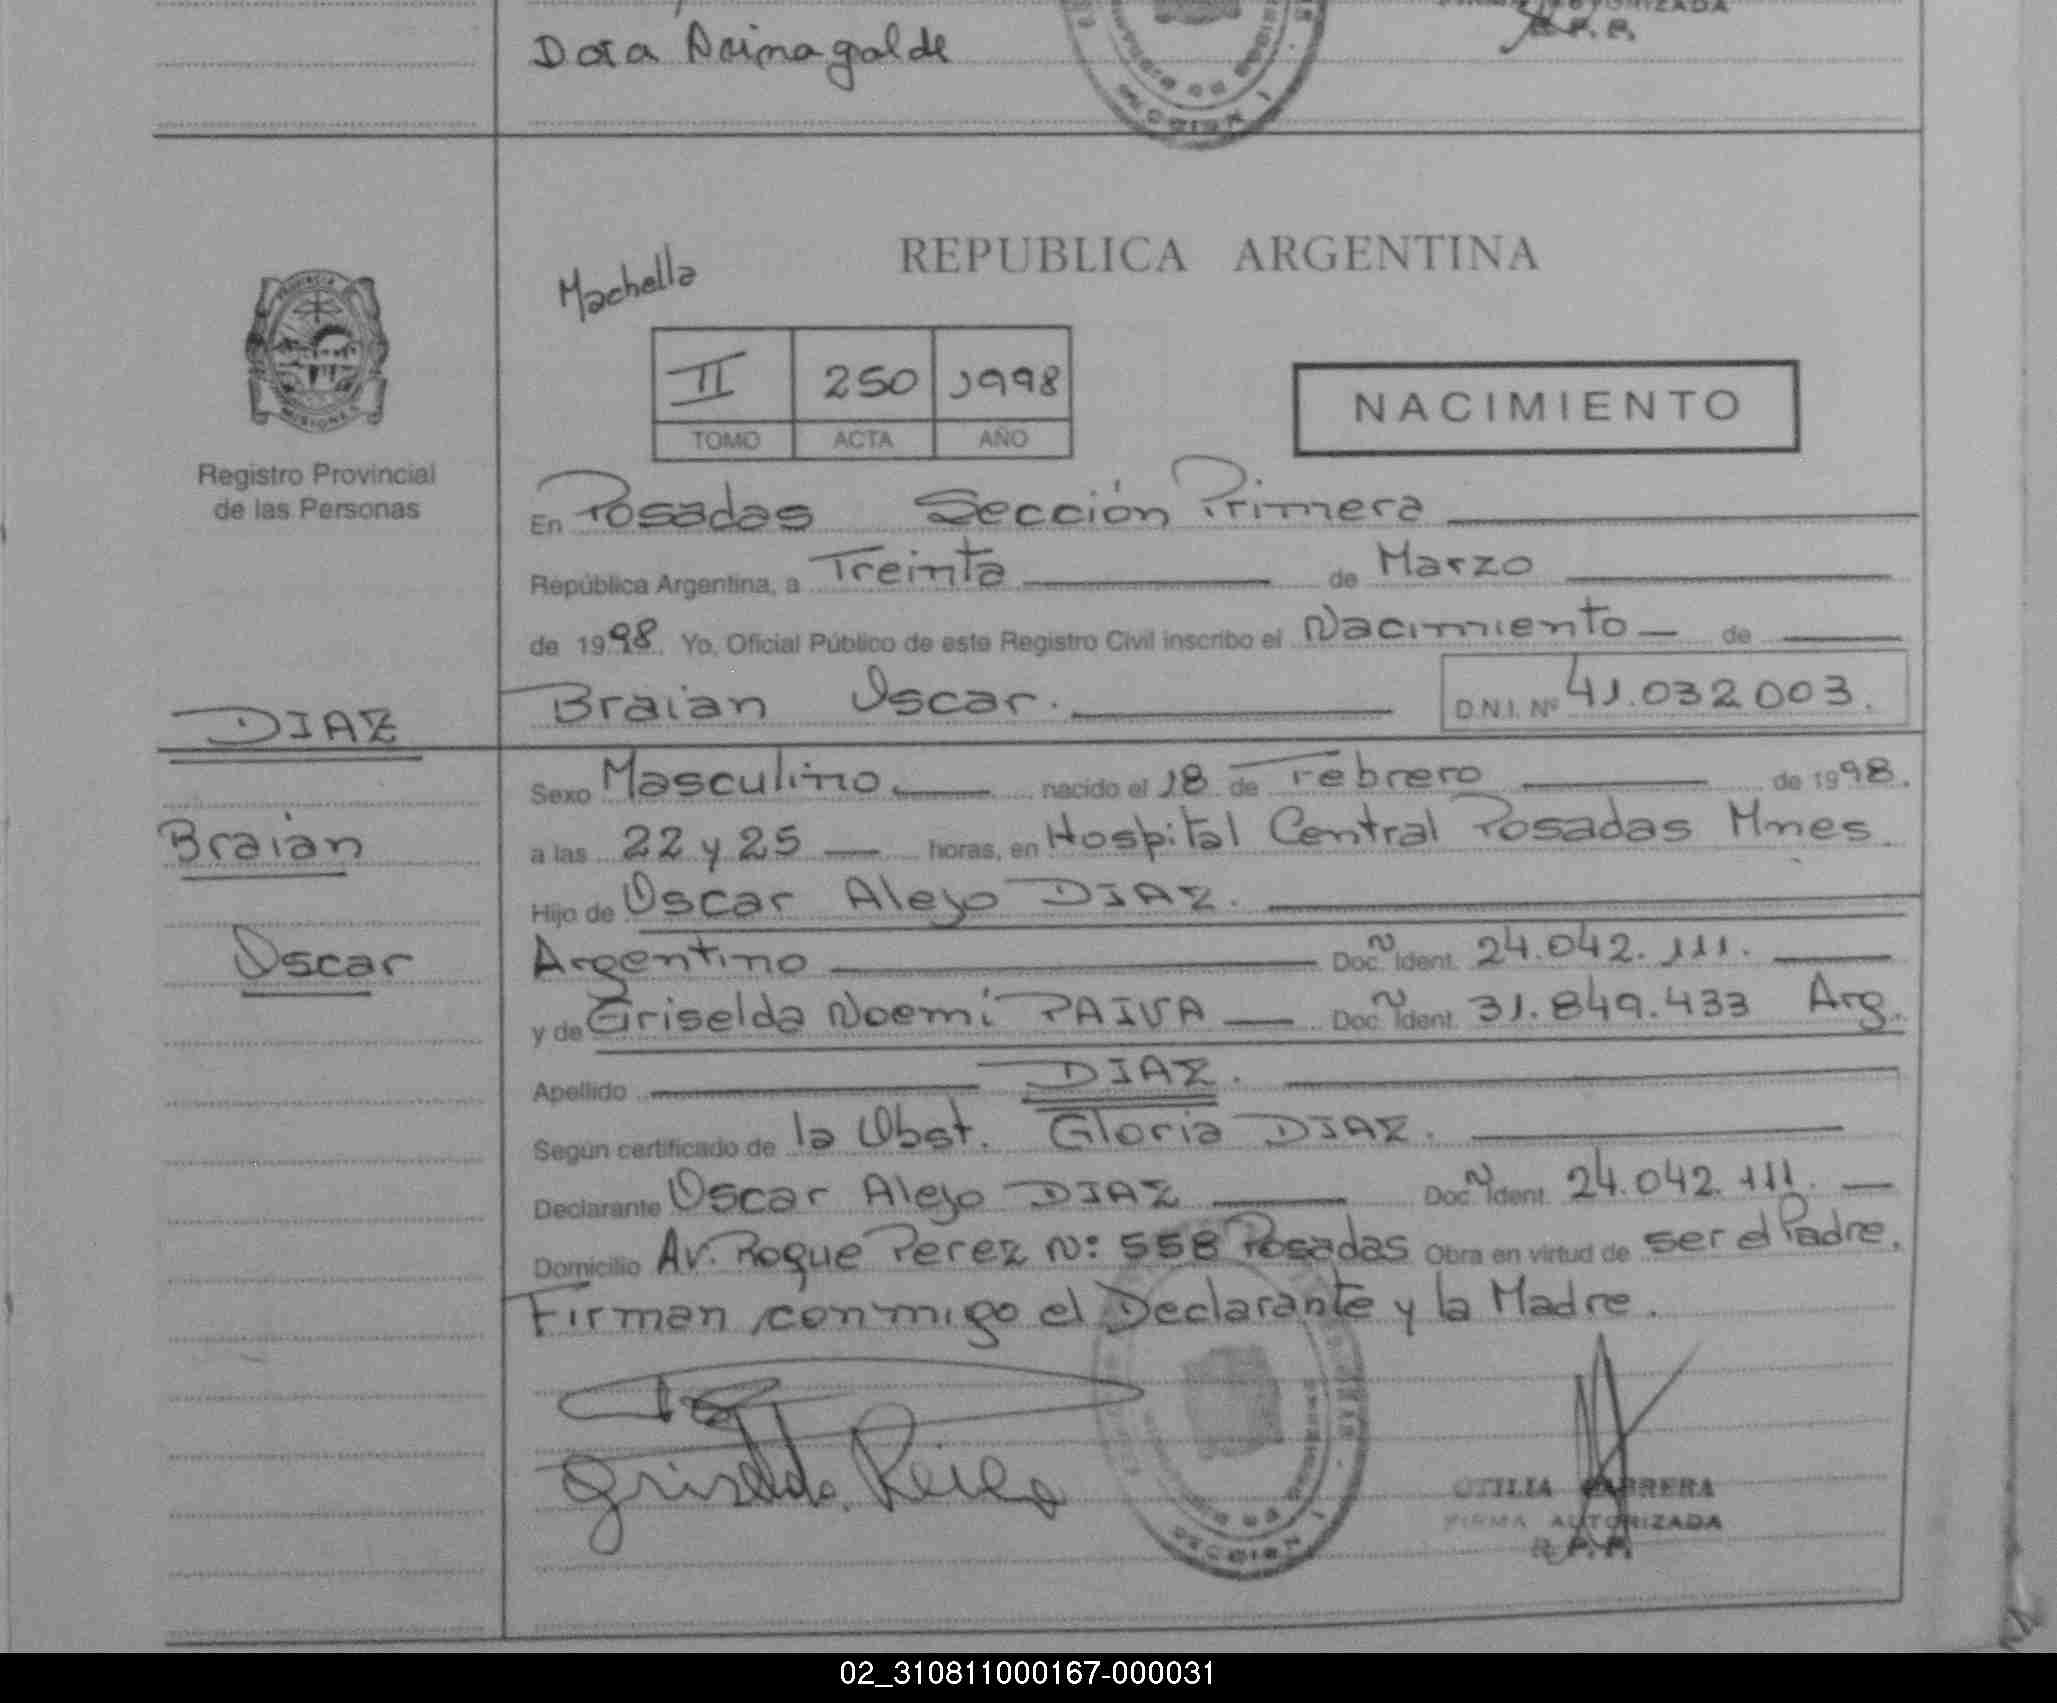 Dora
AUTORIZADA
R.P.P.
REPUBLICA ARGENTINA
Machella
II 250 1998
TOMO ACTA AÑO
NACIMIENTO
PROVINCIA
MISIONES
Registro Provincial
de las Personas
En Posadas Sección Primera
República Argentina, a Treinta de Marzo
de 1998. Yo, Oficial Público de este Registro Civil inscribo el Nacimiento de
DIAZ
Braian Oscar. D.N.I. Nº 41.032003.
Sexo Masculino nacido el 18 de Febrero de 1998.
Braian
a las 22 y 25 horas, en Hospital Central Posadas Mnes.
Hijo de Oscar Alejo DIAZ.
Oscar
Argentino Doc. Ident. 24.042.111.
y de Griselda Noemí PAIVA Doc. Ident. 31.849.433 Arg.
Apellido DIAZ.
Según certificado de la Obst. Gloria DIAZ.
Declarante Oscar Alejo DIAZ Doc. Ident. 24.042.111.
Domicilio Av. Roque Perez Nº 558 Posadas Obra en virtud de ser el Padre.
Firman conmigo el Declarante y la Madre.
Griselda
OTILIA CABRERA
FIRMA AUTORIZADA
R.P.P.
02_310811000167-000031